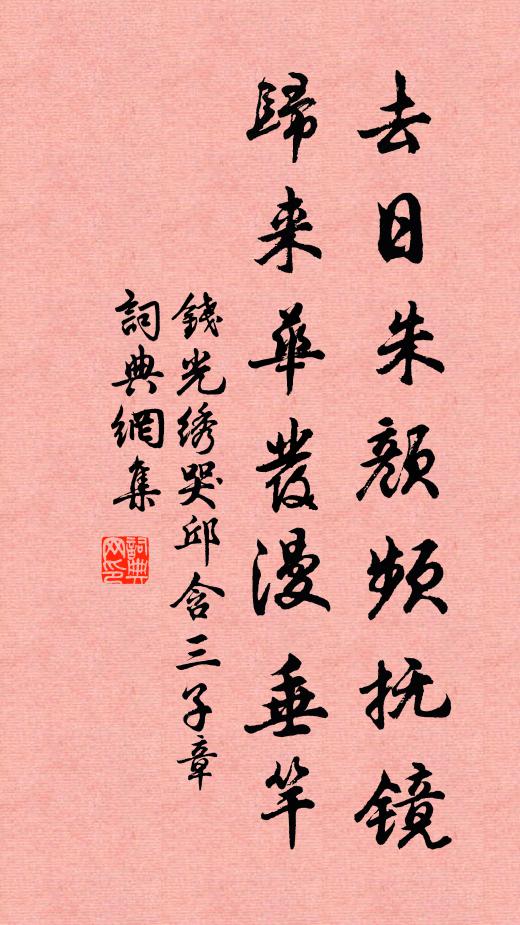 去日朱颜频抚镜
歸来華发漫垂竿
錢光绣哭邱含三子章
詞典網集
詞典网印